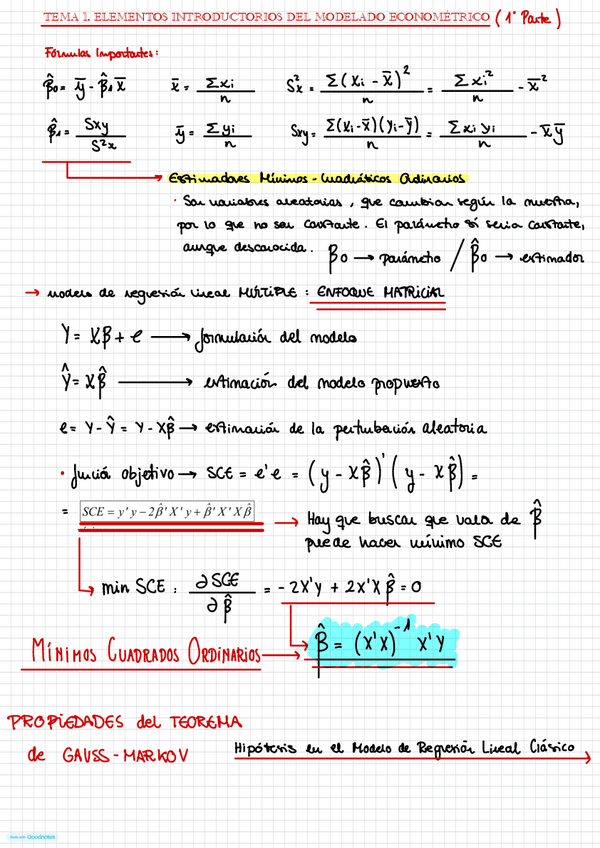 TEMA 1. ELEMENTOS INTRODUCTORIOS DEL MODELADO ECONOMÉTRICO (1ª Parte)
Fórmulas Importantes:
β̂₀ = ȳ - β̂₁x̄   x̄ = Σxi / n   S²x = Σ(xi - x̄)² / n = Σxi² / n - x̄²
β̂₁ = Sxy / S²x   ȳ = Σyi / n   Sxy = Σ(xi - x̄)(yi - ȳ) / n = Σxi yi / n - x̄ȳ
→ Estimadores Mínimos-Cuadráticos Ordinarios
· Son variables aleatorias, que cambian según la muestra,
por lo que no son constante. El parámetro sí sería constante,
aunque desconocida. β₀ → parámetro / β̂₀ → estimador
→ modelo de regresión lineal MÚLTIPLE : ENFOQUE MATRICIAL
Y = Xβ + e → formulación del modelo
Ŷ = Xβ̂ → estimación del modelo propuesto
e = Y - Ŷ = Y - Xβ̂ → estimación de la perturbación aleatoria
· función objetivo → SCE = e'e = (y - Xβ̂)' (y - Xβ̂) =
= SCE = y'y - 2β̂'X'y + β̂'X'Xβ̂ → Hay que buscar que valor de β̂
puede hacer mínimo SCE
→ min SCE : ∂SCE / ∂β̂ = -2X'y + 2X'Xβ̂ = 0
MÍNIMOS CUADRADOS ORDINARIOS → β̂ = (X'X)⁻¹ X'Y
PROPIEDADES del TEOREMA
de GAUSS-MARKOV
Hipótesis en el Modelo de Regresión Lineal Clásico →
Made with Goodnotes